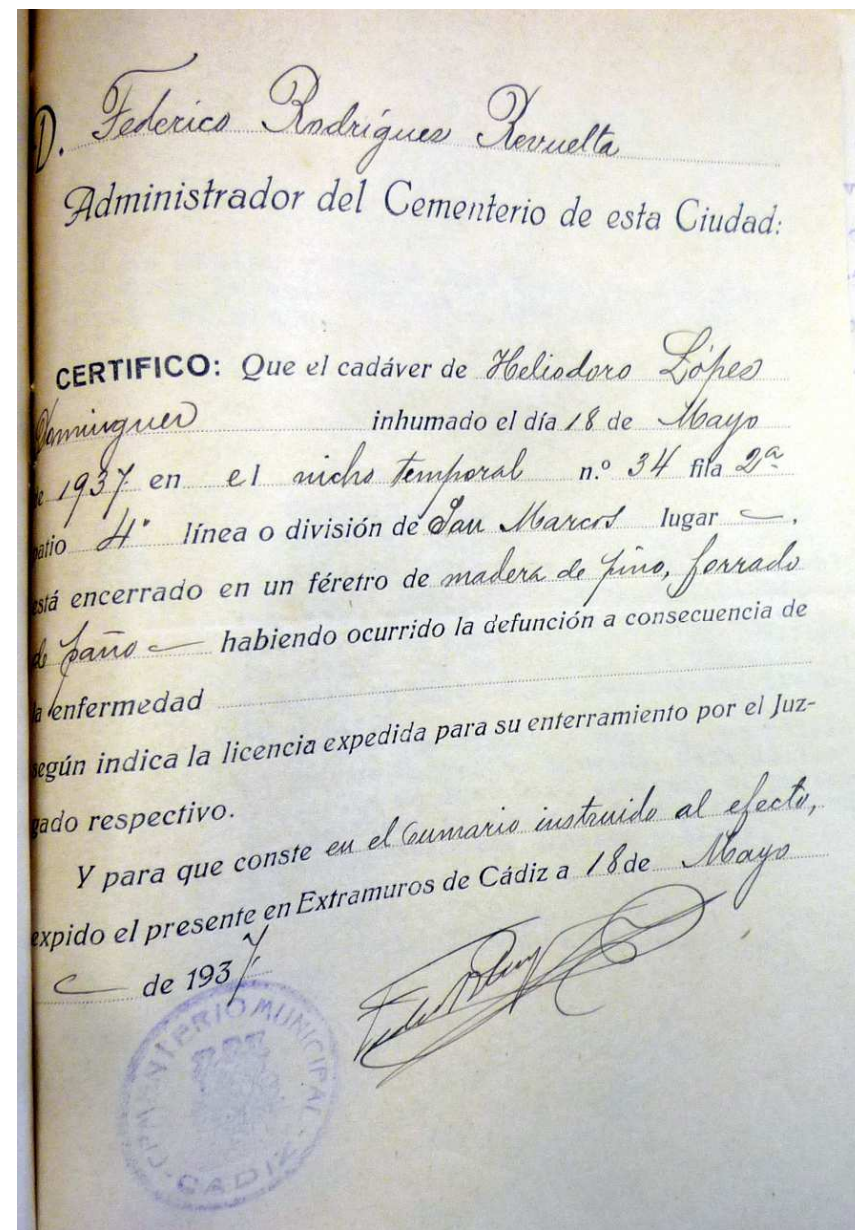 D. Federico Rodrígues Revuelta
Administrador del Cementerio de esta Ciudad:
CERTIFICO: Que el cadáver de Heliodoro Lópes
Domingues inhumado el día 18 de Mayo
de 1937 en el nicho temporal n.º 34 fila 2ª
patio 4º línea o división de San Marcos lugar —.
está encerrado en un féretro de madera de pino, forrado
de paño — habiendo ocurrido la defunción a consecuencia de
la enfermedad
según indica la licencia expedida para su enterramiento por el Juz-
gado respectivo.
Y para que conste en el Sumario instruido al efecto,
expido el presente en Extramuros de Cádiz a 18 de Mayo
— de 1937
CEMENTERIO MUNICIPAL · CADIZ ·